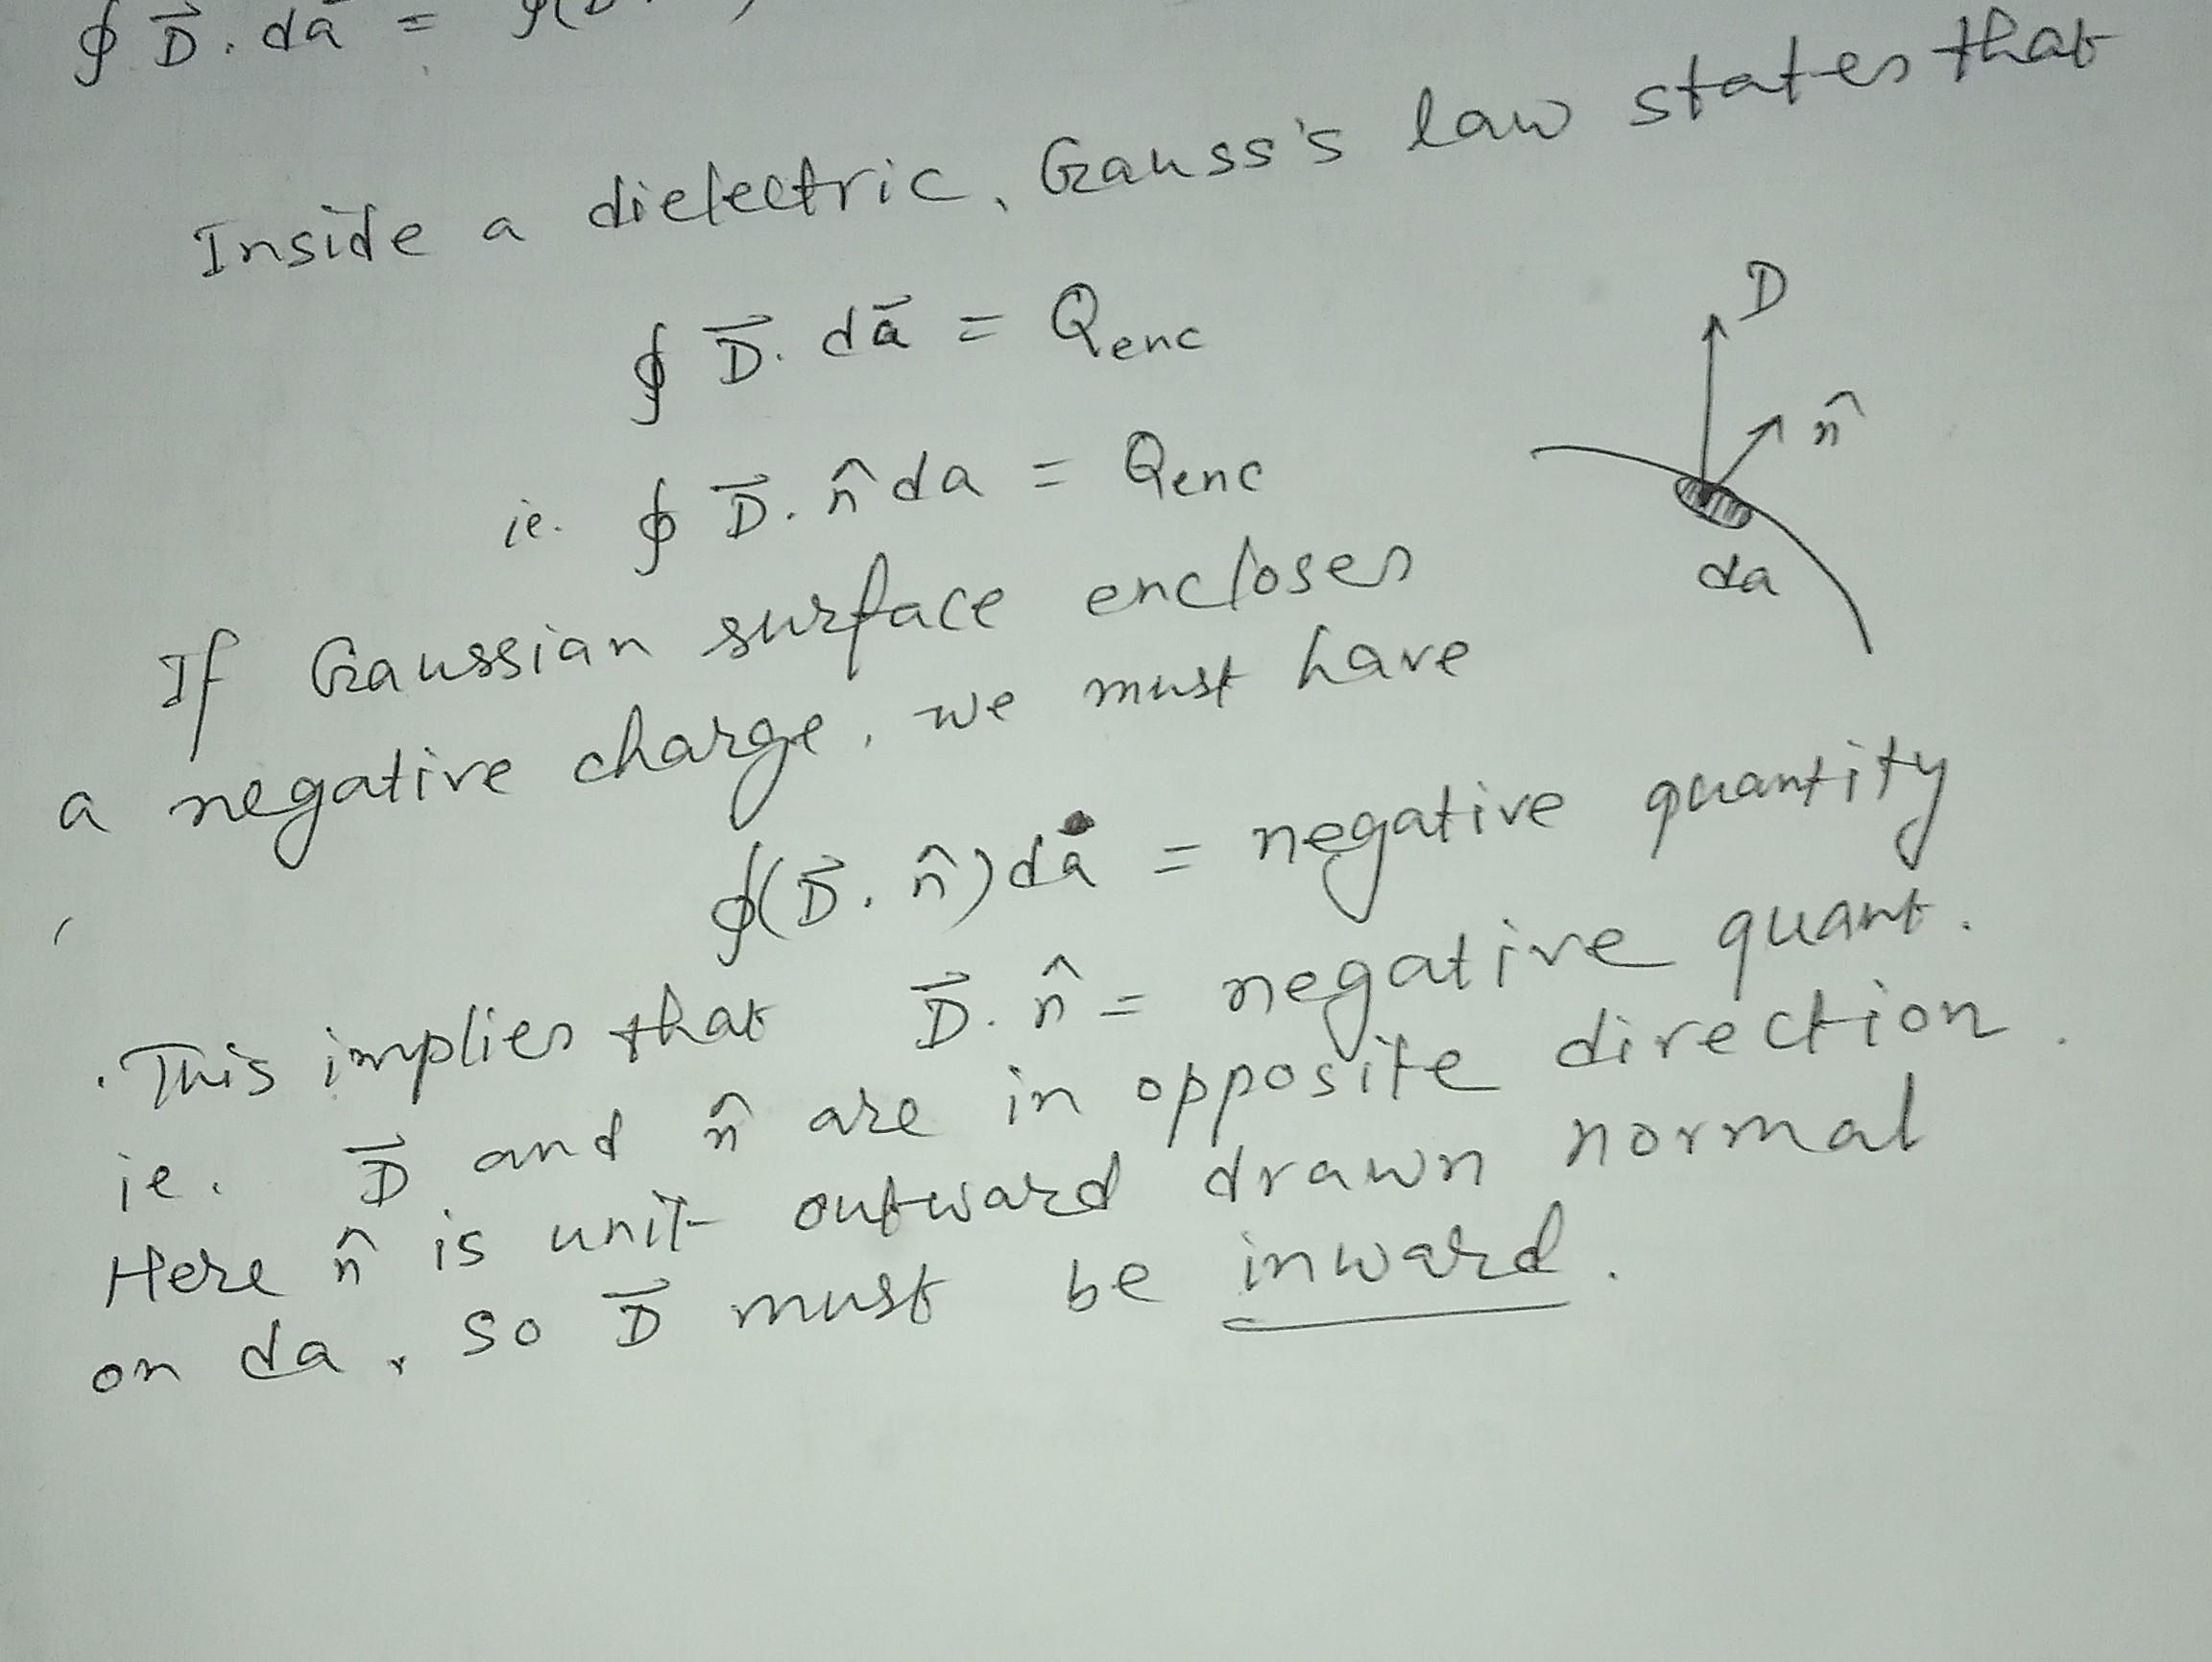 ∮ D⃗. da⃗ =
Inside a dielectric, Gauss's law states that
∮ D⃗. da⃗ = Qenc
ie. ∮ D⃗. n̂ da = Qenc
D
n̂
da
If Gaussian surface encloses
a negative charge, we must have
∮(D⃗. n̂) da = negative quantity
. This implies that D⃗. n̂ = negative quant.
ie. D⃗ and n̂ are in opposite direction.
Here n̂ is unit outward drawn normal
on da, so D⃗ must be inward.